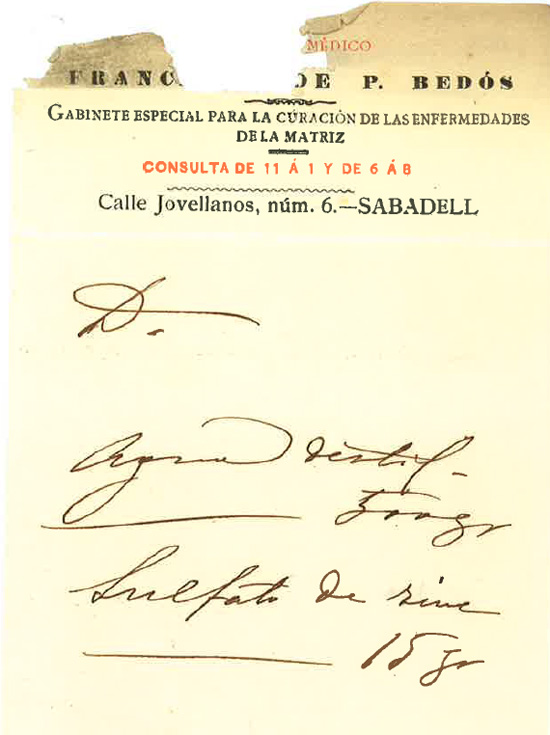 MÉDICO
FRANC DE P. BEDÓS
GABINETE ESPECIAL PARA LA CURACIÓN DE LAS ENFERMEDADES
DE LA MATRIZ
CONSULTA DE 11 Á 1 Y DE 6 Á 8
Calle Jovellanos, núm. 6.—SABADELL
D.
Agua destil.
500 gr
Sulfato de zinc
15 gr